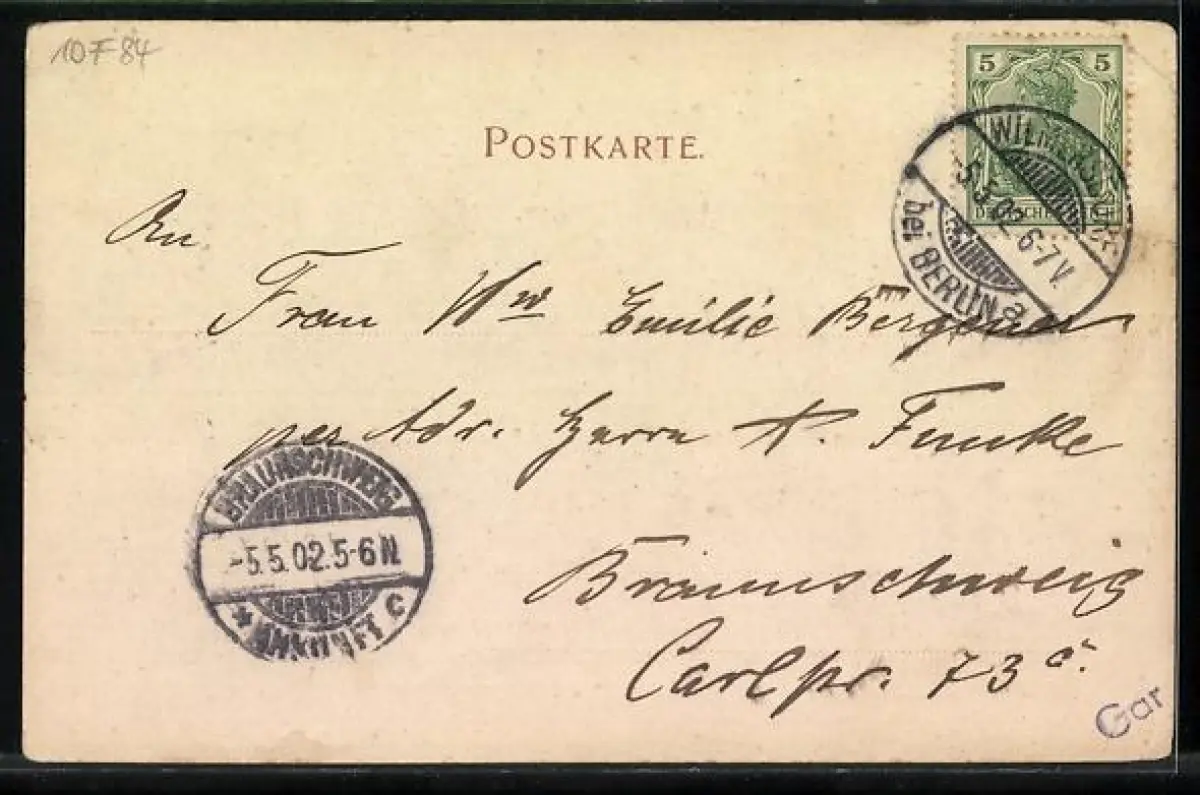 10F84
5 5
DEUTSCHES REICH
WILMERSDORF
5.5.02 6-7V.
bei BERLIN a
POSTKARTE.
An
Frau Ww Emilie
per Adr. Herrn A. Funke
Braunschweig
Carlstr. 73 c.
BRAUNSCHWEIG
-5.5.02.5-6N
* ANKUNFT c
Gar